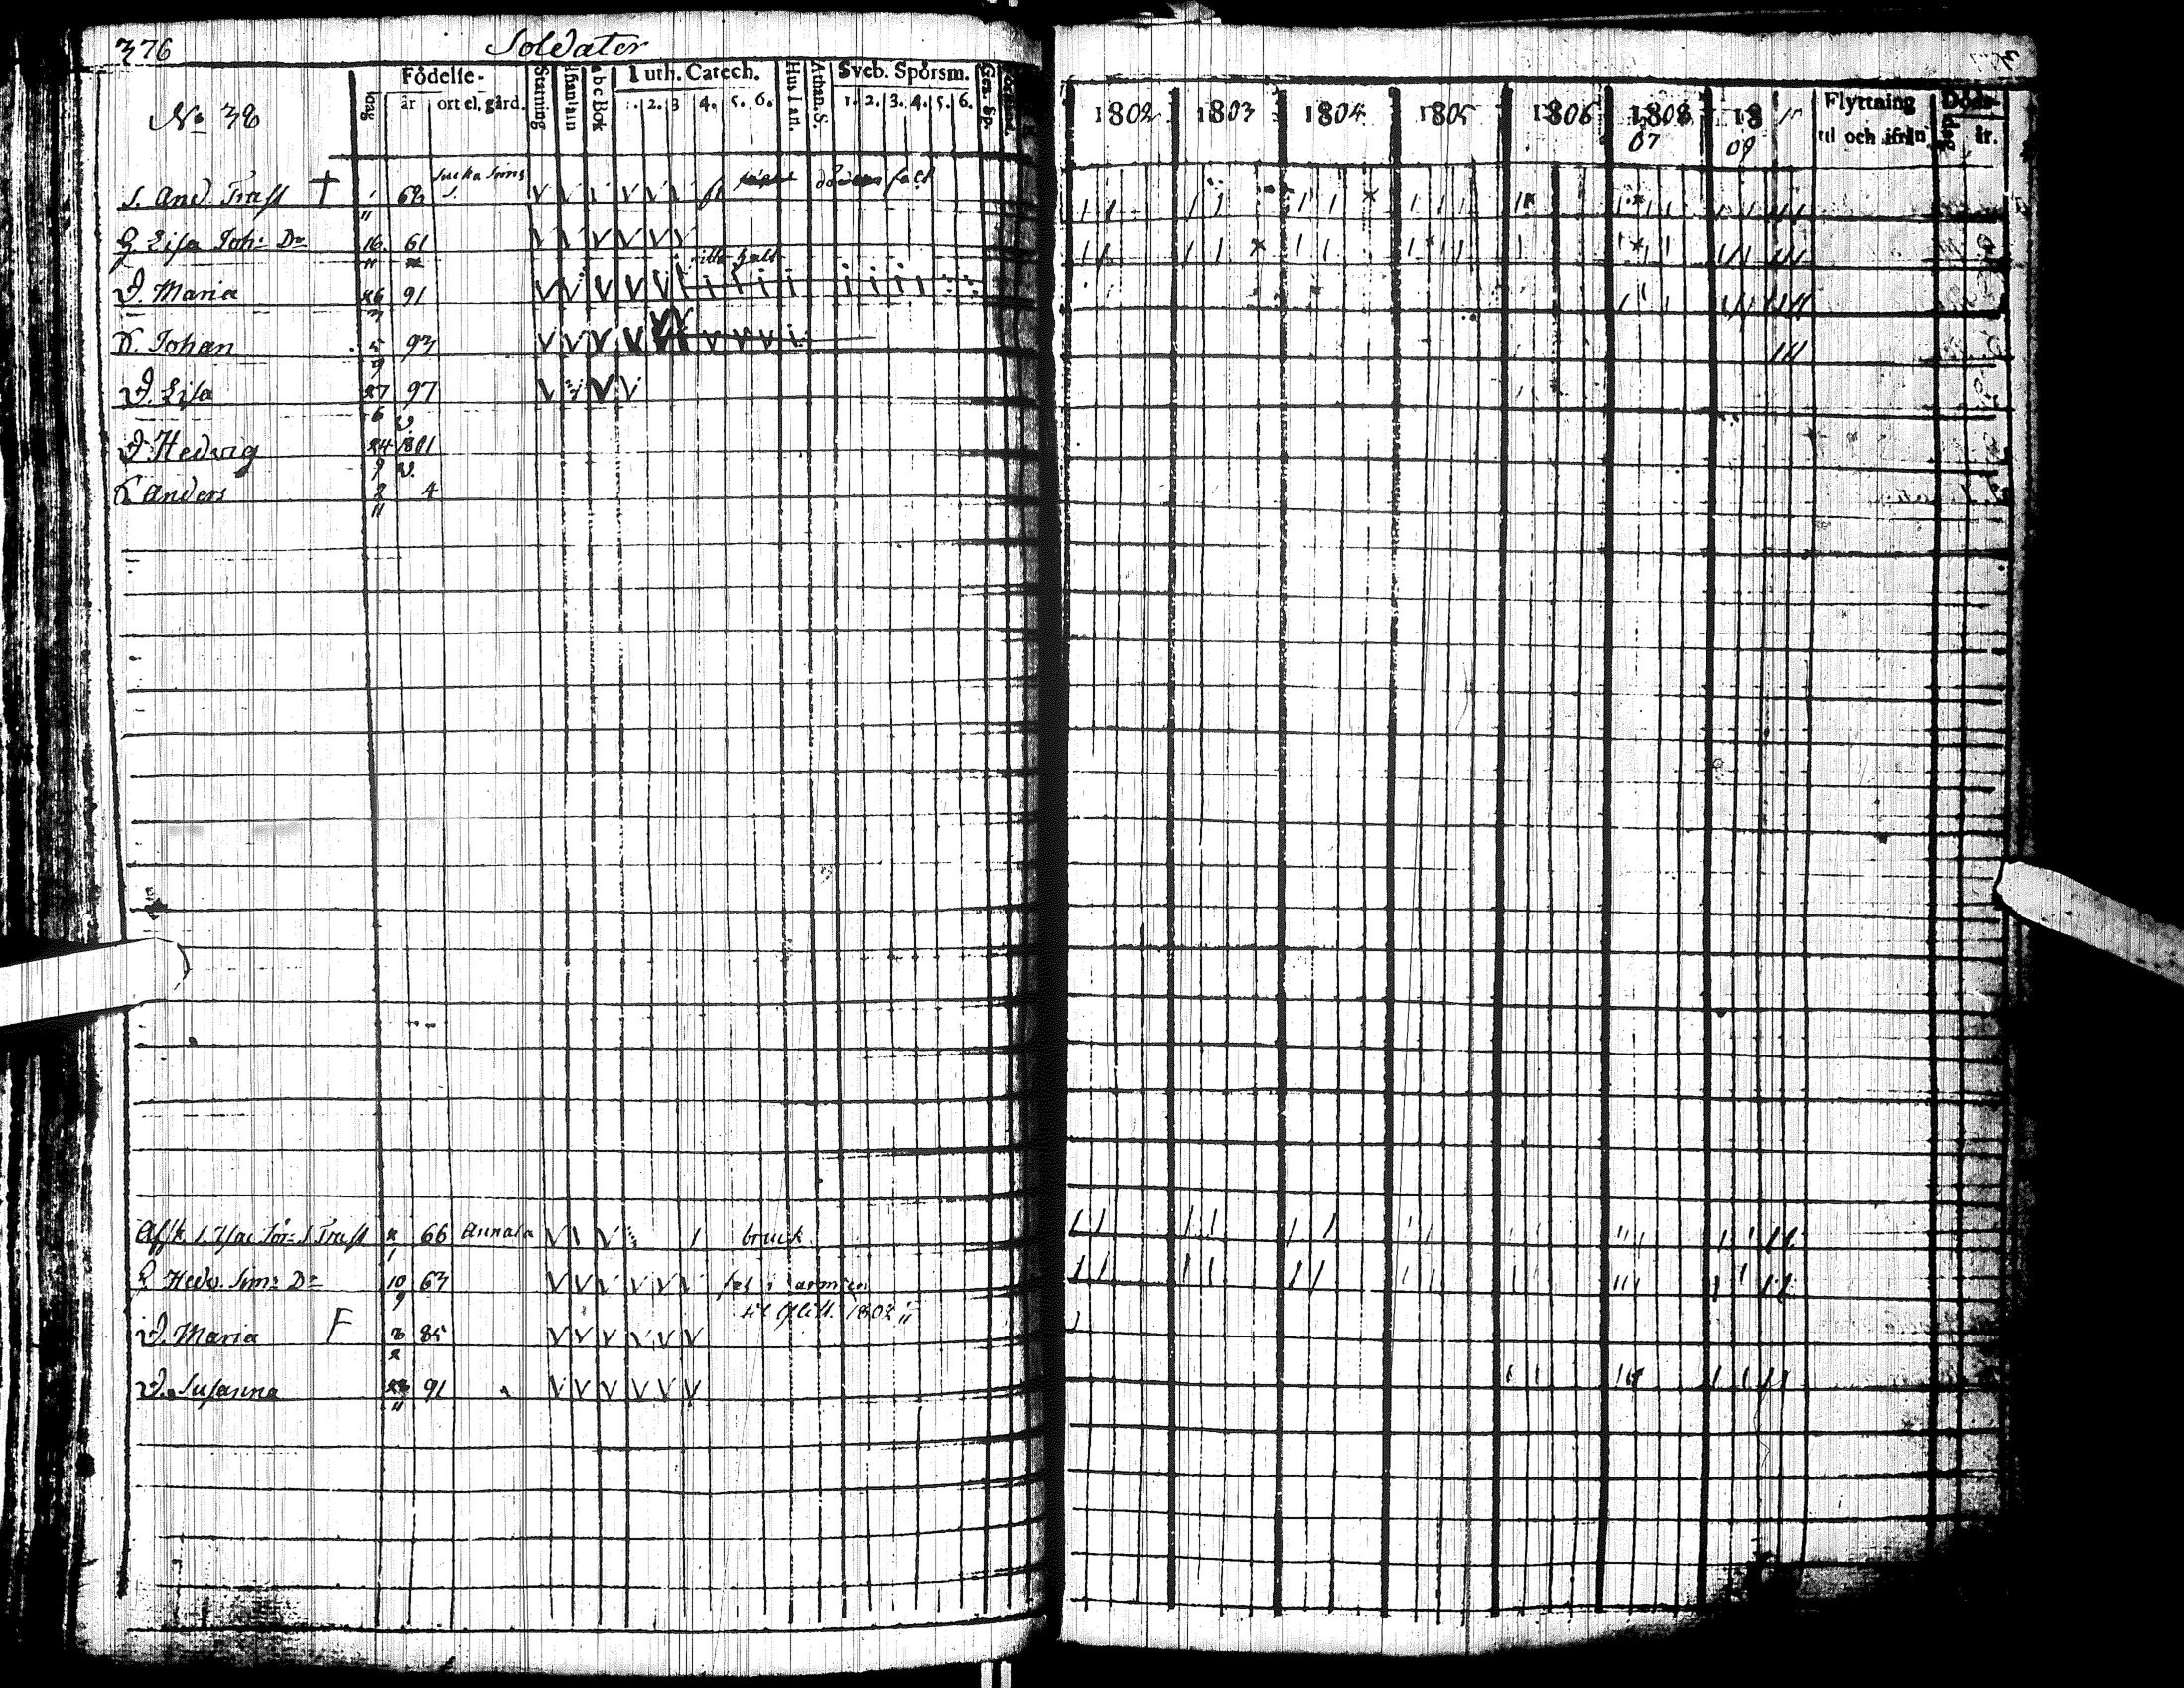 376 Soldater
Födelse- Stafning Innantill abc Bok Luth. Catech. Hus Tafl. Athan. S. Sveb. Spörsm. Gen. Sp.
dag år ort el. gård. 1. 2. 3 4. 5. 6. 1. 2. 3. 4. 5. 6.
No 38
1802 1803 1804 1805 1806 1808 18 Flyttning Döds-
07 09 til och ifrån dag år.
S. And. Trast † 1 62
11
H Lisa Joh: Dr 16 61
11
D. Maria 26 91
3
S. Johan 5 93
9
D. Lisa 27 97
6
D. Hedvig 24 1801
9
S. Anders 2 4
11
Afsk. S. Isac Trast 2 66 Annala bruck
1
H Hedv. Sim: Dr 10 63
9
1802
D. Maria F 85
2
D. Susanna 23 91
11